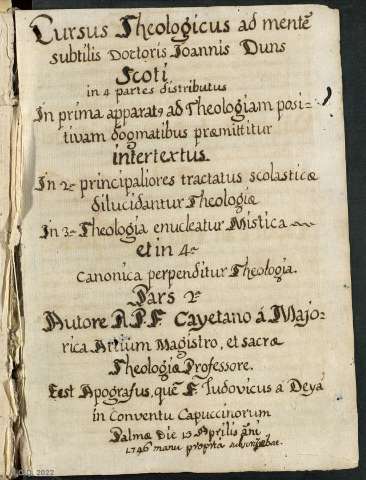 Cursus Theologicus ad mentē
subtilis Doctoris Ioannis Duns
Scoti
in 4 partes distributus
In prima apparat9 ad Theologiam posi-
tivam dogmatibus præmittitur
intertextus.
In 2ª principaliores tractatus scolasticæ
dilucidantur Theologiæ
In 3ª Theologia enucleatur Mistica
et in 4ª
Canonica perpenditur Theologia.
Pars 2ª
Autore R.P.F. Cayetano á Majo-
rica Artium Magistro, et sacræ
Theologiæ Professore.
Est Apografus, quē F. Ludovicus a Deyá
in Conventu Capuccinorum
Palmæ Die 15 Aprilis āni
1746 manu propria
2022